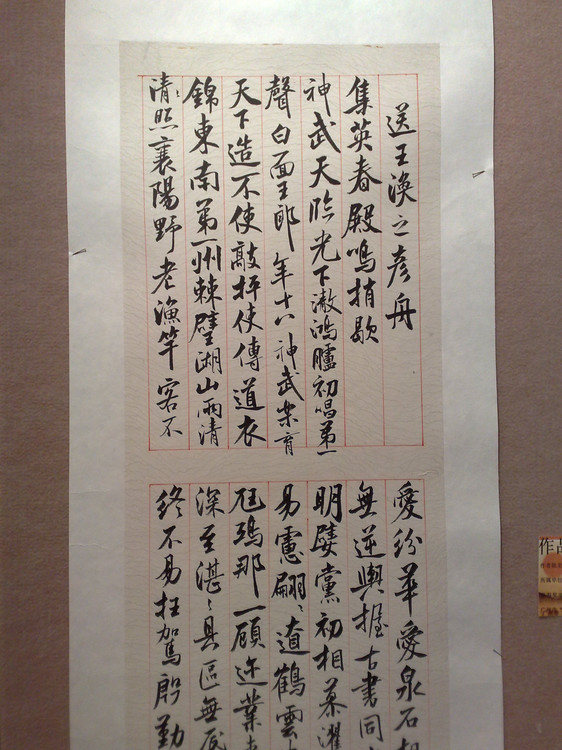 送王渙之彦舟
集英春殿鳴捎歇
神武天臨光下澈鴻臚初唱第一
聲白面王郎年十八神武樂育
天下造不使敲枰使傳道衣
錦東南第一州棘璧湖山兩清
清照襄陽野老漁竿客不
愛紛華愛泉石
無逆輿握古書同
朋嬖黨初相慕濯
易慮翩〻遼鶴雲
尫鵶那一顧迩業
深至湛〻具區無底
終不易枉駕殷勤
作品